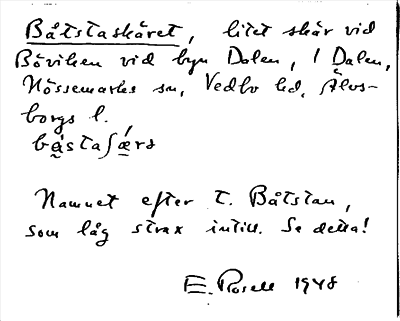 Båtstaskäret, litet skär vid
Båviken vid byn Dalen, / Dalen,
Nössemarks sn, Vedbo hd, Älvs-
borgs l.
båstaʃǽrə
Namnet efter t. Båtstan,
som låg strax intill. Se detta!
E. Rosell 1948